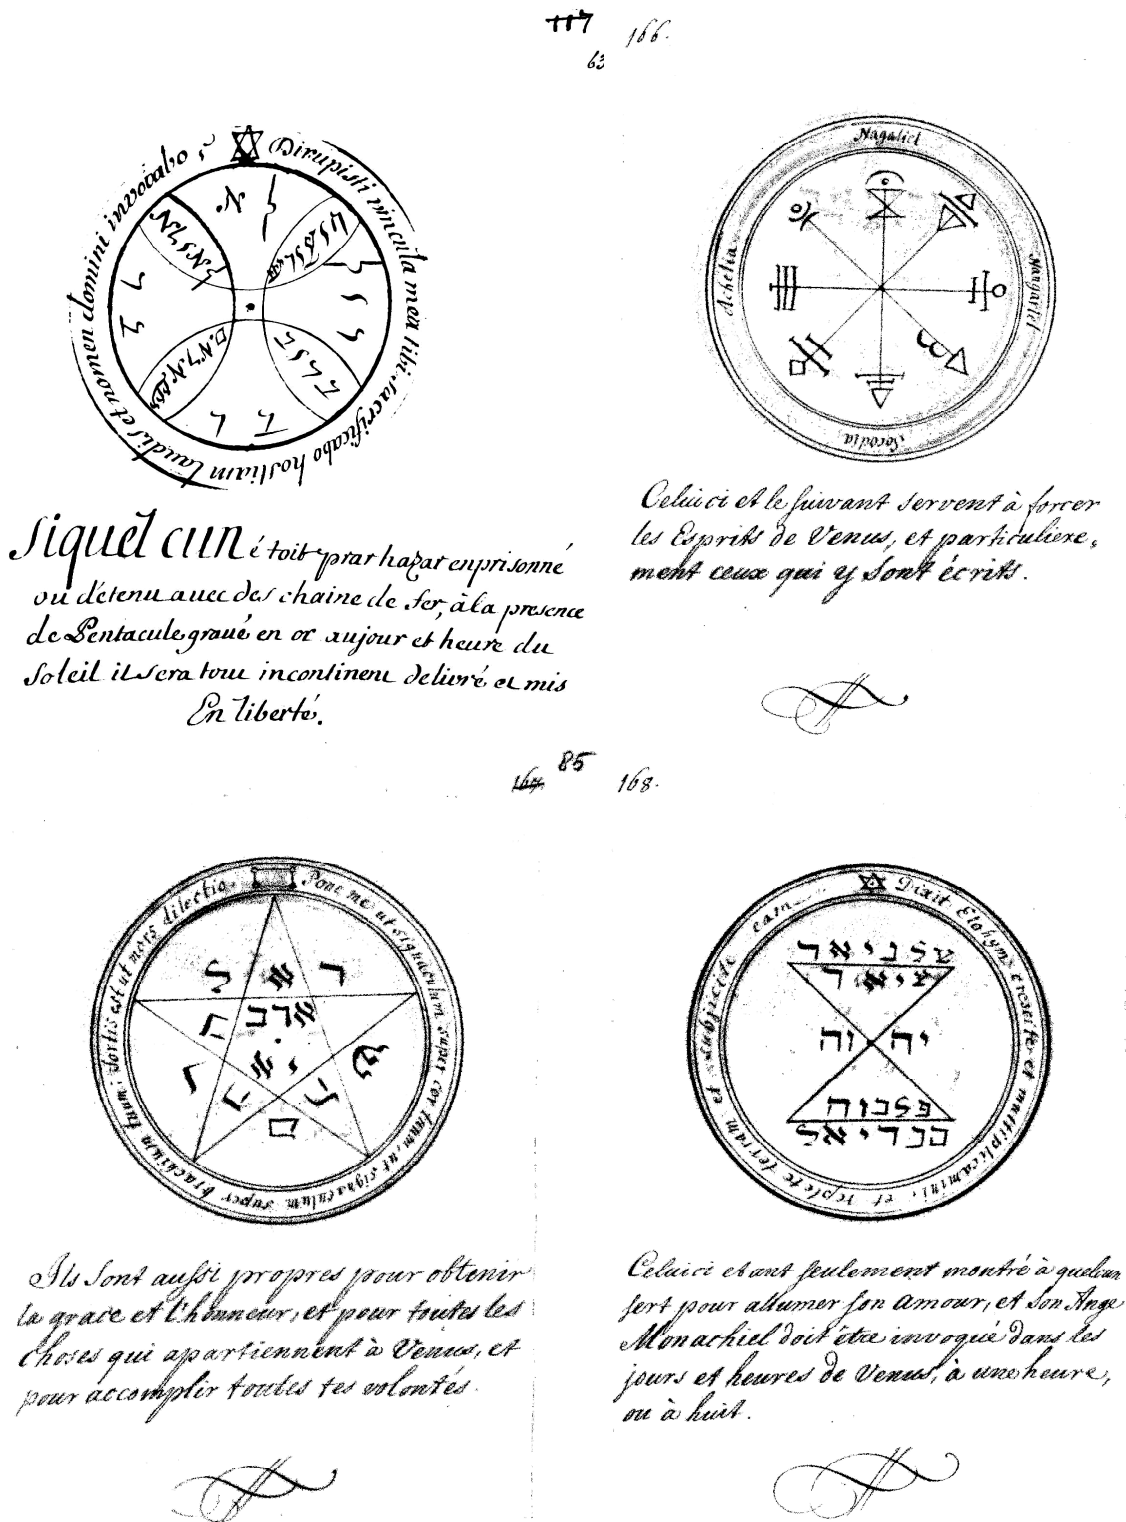 117 166.
63
Dirupisti vincula mea tibi sacrificabo hostiam Laudis et nomen domini invocabo,
Siquel cun étoit prar hazar enprisonné
ou détenu avec des chaine de fer, à la presence
de Pentacule gravé en or au jour et heure du
Soleil il sera tout incontinent delivré et mis
En liberté.
Nagaliel
Nangariel
Socodia
Achelia
Celui ci et le suivant servent à forcer
les Esprits de Venus, et particuliere,
ment ceux qui y sont écrits.
85
168.
Pone me ut signaculum super cor tuum, ut signaculum super brachium tuum: fortis est ut mors dilectio.
Ils sont aussi propres pour obtenir
la grace et l'honneur, et pour toutes les
choses qui apartiennent à Venus, et
pour accomplir toutes tes volontés.
Dixit Elohym, crescite et multiplicamini, et replete terram et subjicite eam
יה וה
Celui ci etant seulement montré à quelcun
sert pour allumer son amour, et son Ange
Monachiel doit être invoqué dans les
jours et heures de Venus, à une heure,
ou à huit.